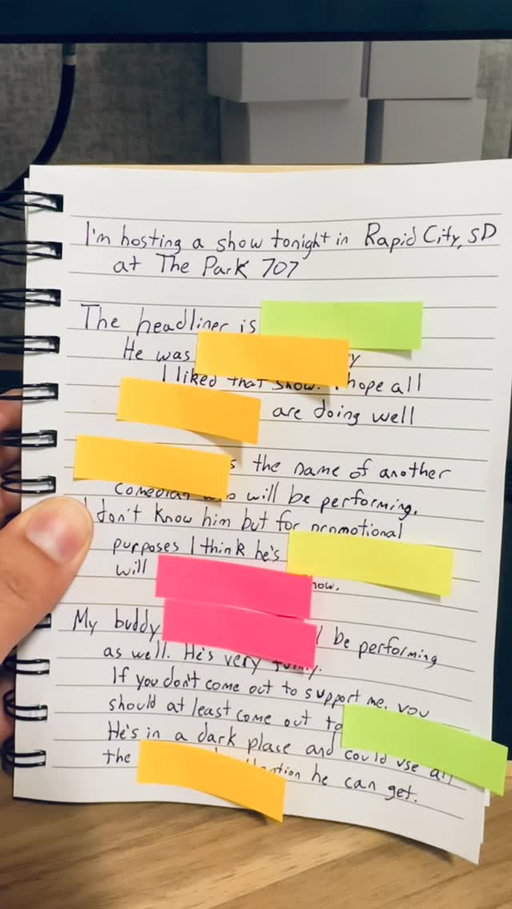 I'm hosting a show tonight in Rapid City, SD
at The Park 707
The headliner is
He was
I liked that show. I hope all
are doing well
the name of another
comedian who will be performing.
I don't know him but for promotional
purposes I think he's
will
My buddy
be performing
as well. He's very funny.
If you don't come out to support me, you
should at least come out to
He's in a dark place and could use all
the attention he can get.